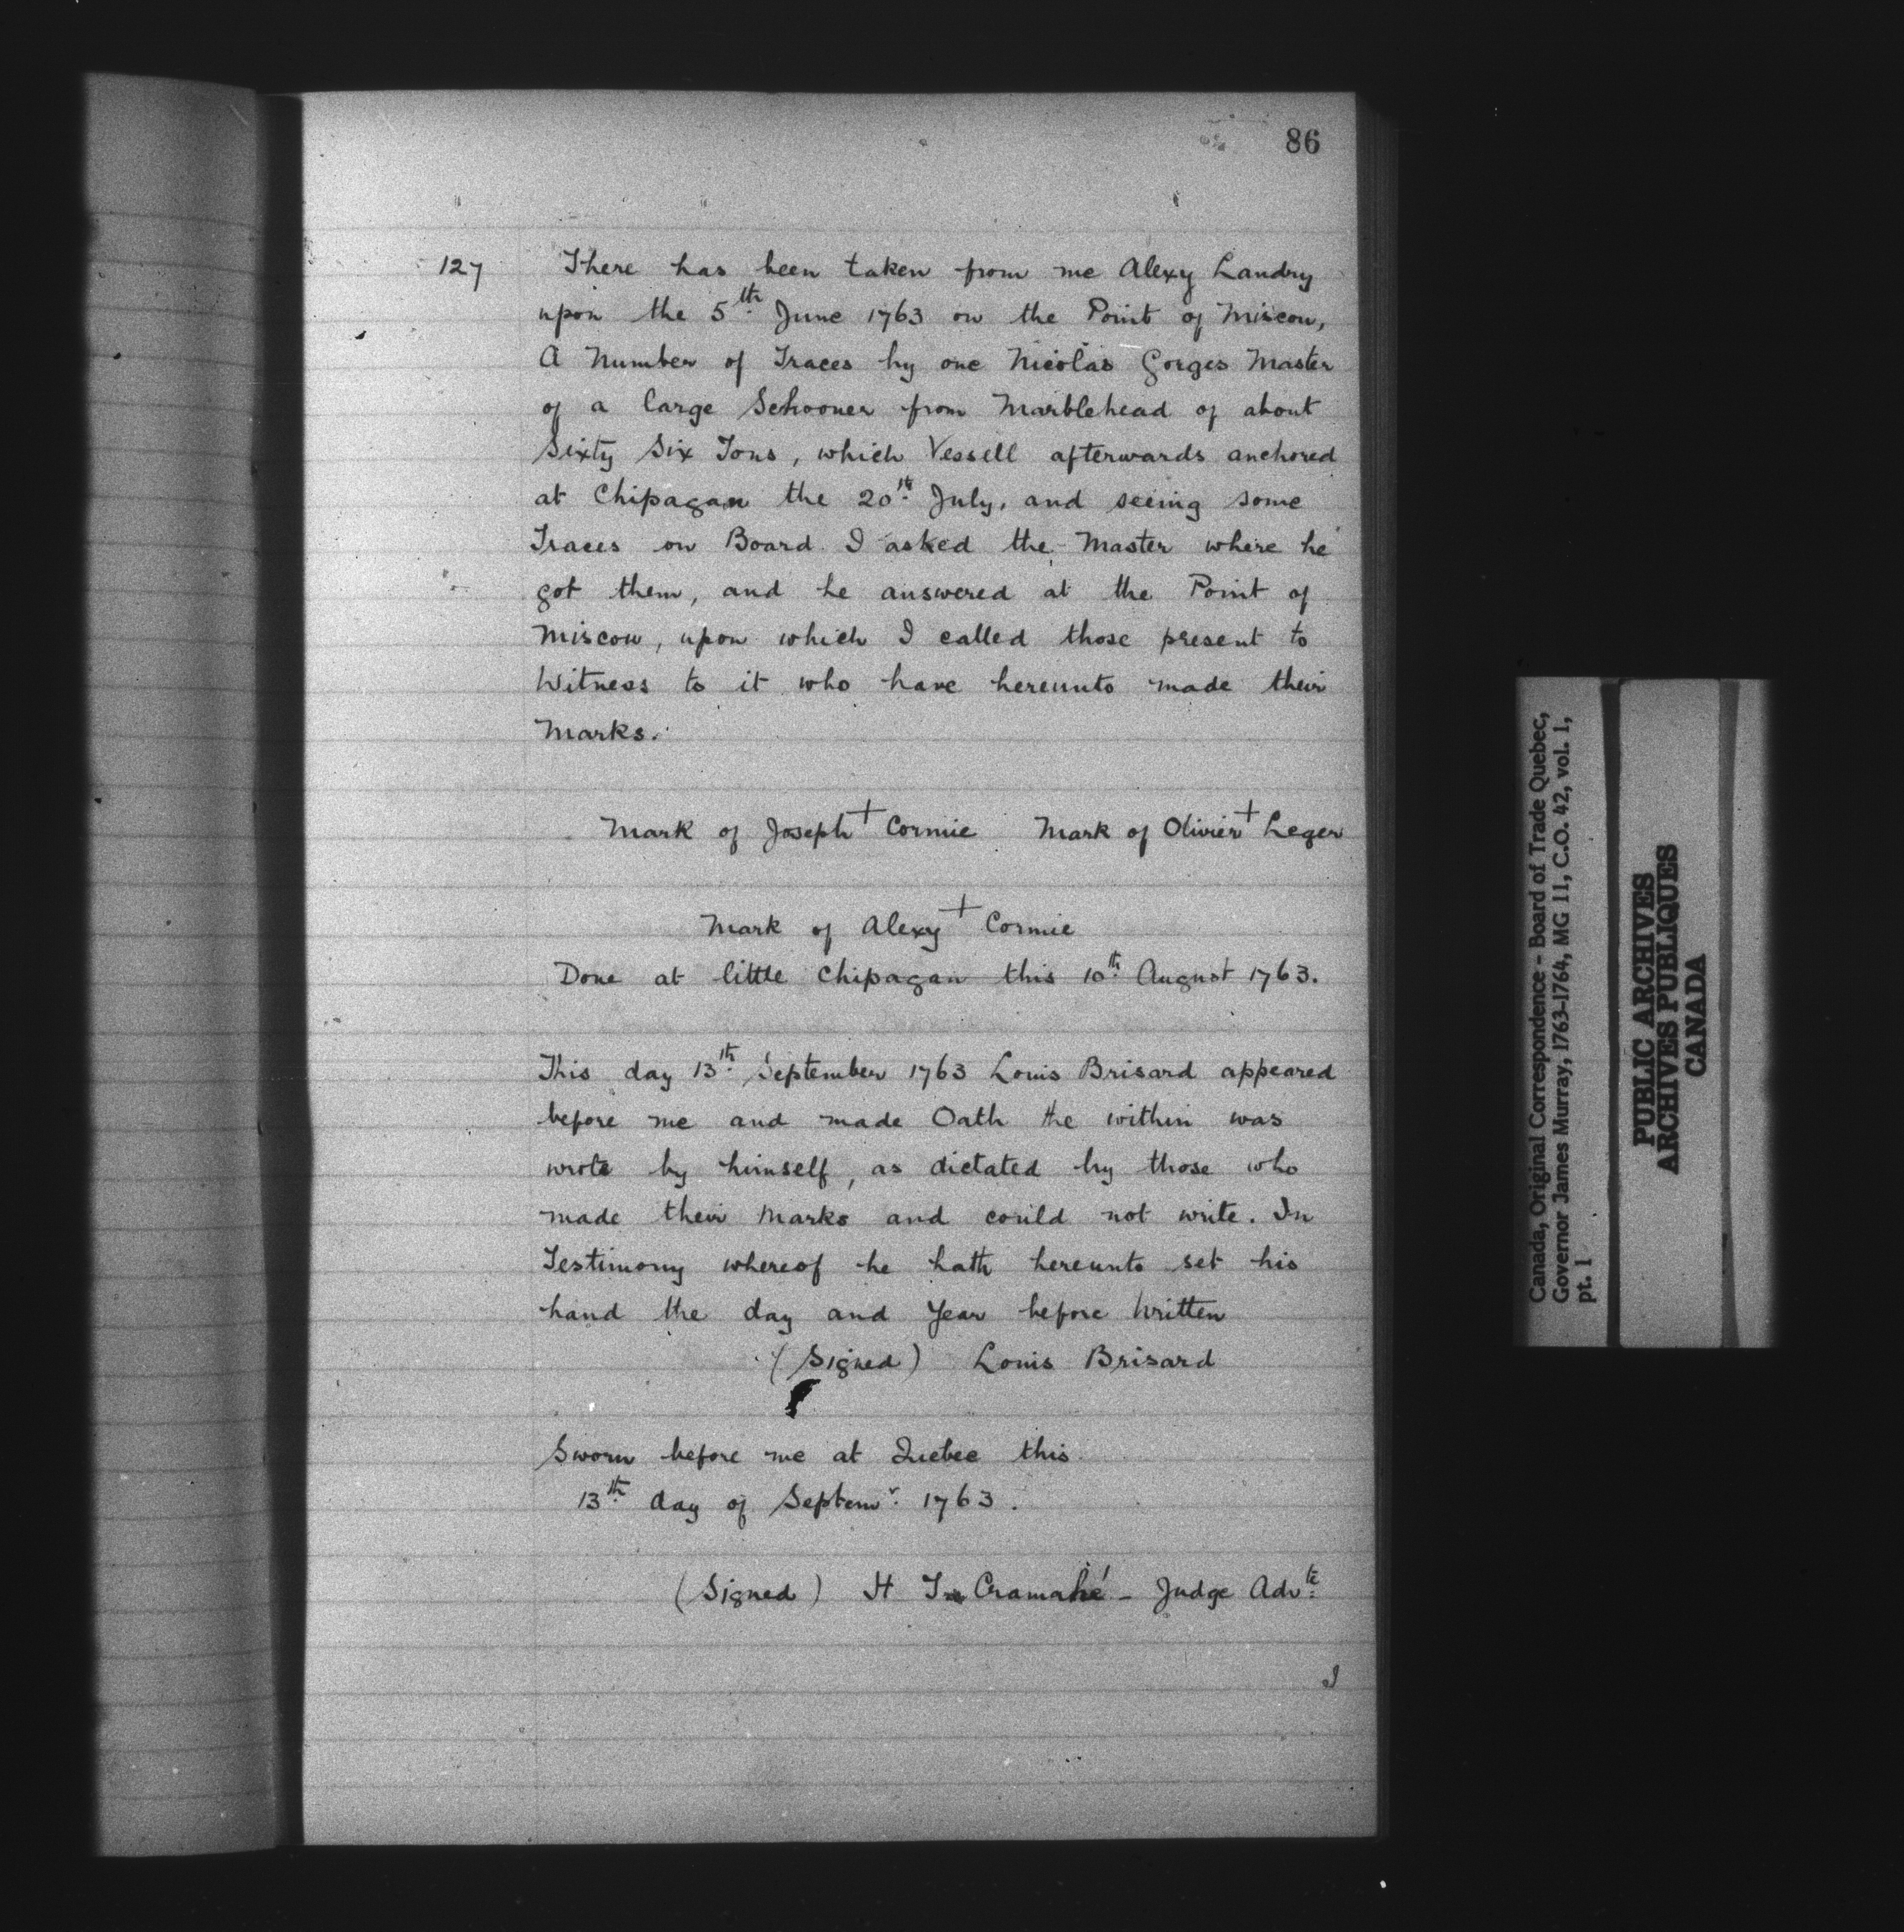 86
127
There has been taken from me Alexy Landry
upon the 5th June 1763 on the Point of Miscou,
A Number of Traces by one Nicolas Gorges Master
of a large Schooner from Marblehead of about
Sixty Six Tons, which Vessell afterwards anchored
at Chipagan the 20th July, and seeing some
Traces on Board I asked the Master where he
got them, and he answered at the Point of
Miscou, upon which I called those present to
Witness to it who have hereunto made their
Marks.
Mark of Joseph + Cormie Mark of Olivier + Leger
Mark of Alexy + Cormie
Done at little Chipagan this 10th August 1763.
This day 13th September 1763 Louis Brisard appeared
before me and made Oath the within was
wrote by himself, as dictated by those who
made their Marks and could not write. In
Testimony whereof he hath hereunto set his
hand the day and Year before Written
(Signed) Louis Brisard
Sworn before me at Quebec this
13th day of Septemr. 1763.
(Signed) H T Cramahé - Judge Advte
I
Canada, Original Correspondence - Board of Trade Quebec,
Governor James Murray, 1763-1764, MG 11, C.O. 42, vol. 1,
pt. 1
PUBLIC ARCHIVES
ARCHIVES PUBLIQUES
CANADA